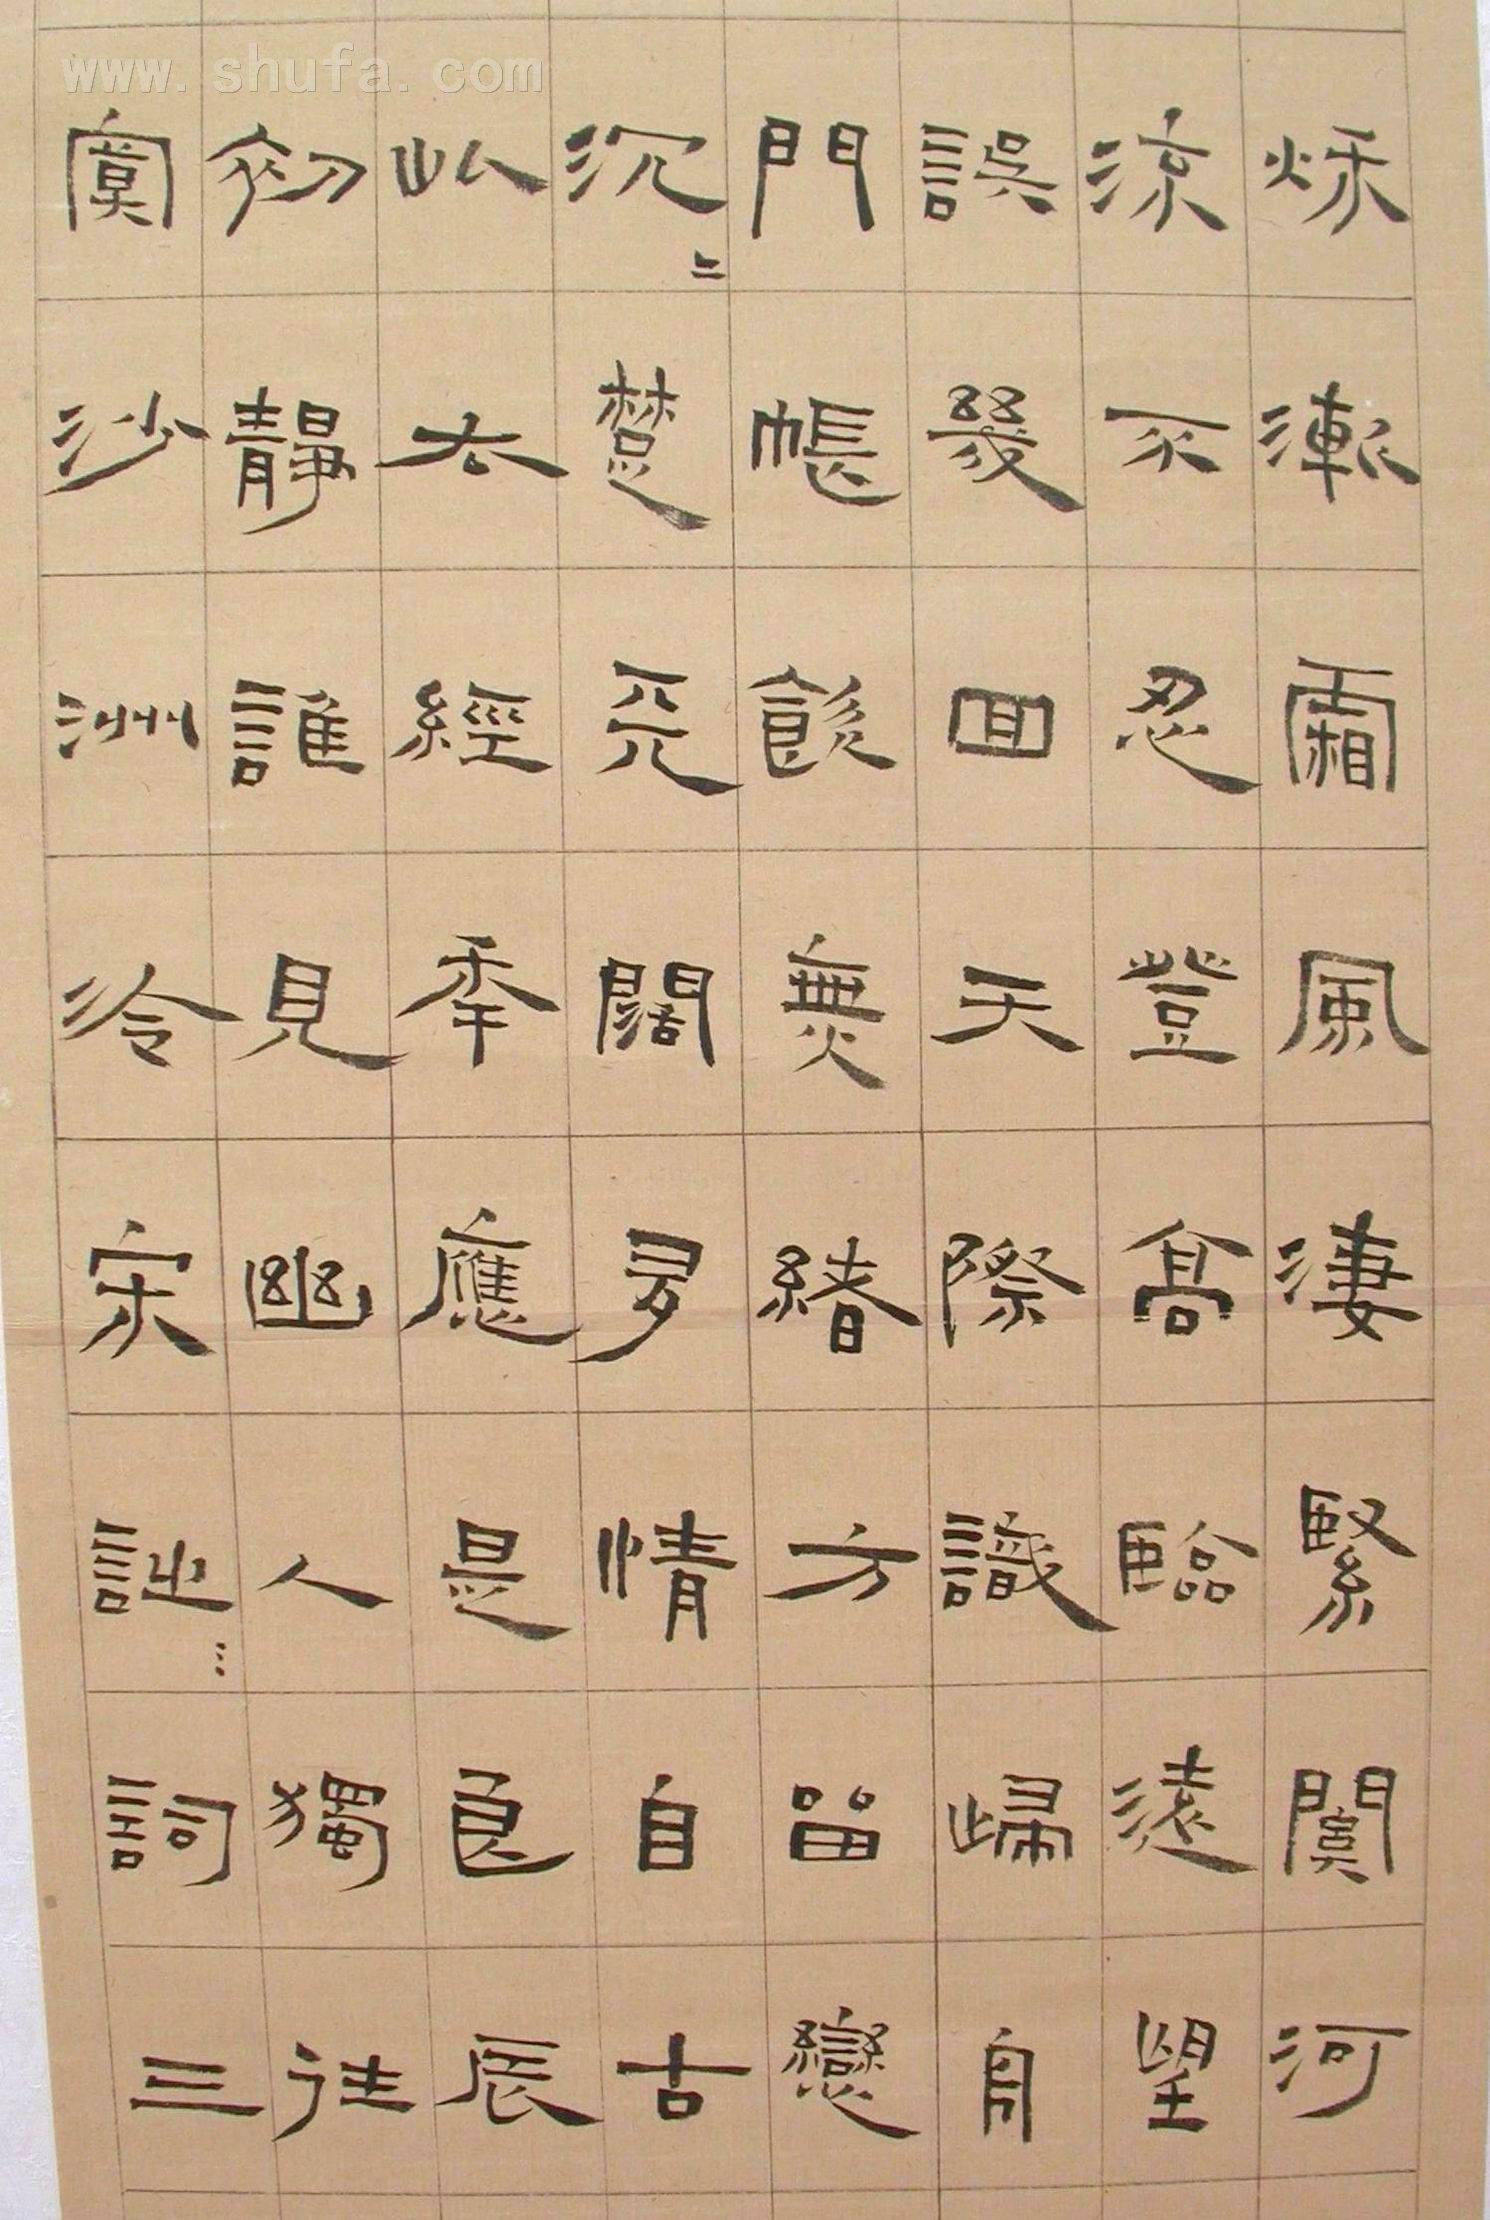 www.shufa.com
秋漸霜風淒緊關河
涼不忍登高臨遠望
誤幾回天際識歸舟
門帳飲無緒方留戀
沉〻楚天闊多情自古
此去經年應是良辰
初靜誰見幽人獨往
寞沙洲冷宋詞三